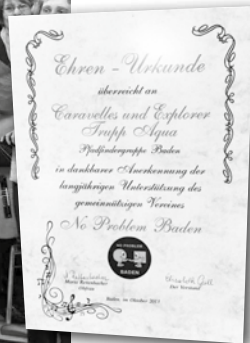 Ehren - Urkunde
überreicht an
Caravelles und Explorer
Trupp Aqua
Pfadfindergruppe Baden
in dankbarer Anerkennung der
langjährigen Unterstützung des
gemeinnützigen Vereines
No Problem Baden
NO PROBLEM
BADEN
Obfrau
Der Vorstand
Baden, im Oktober